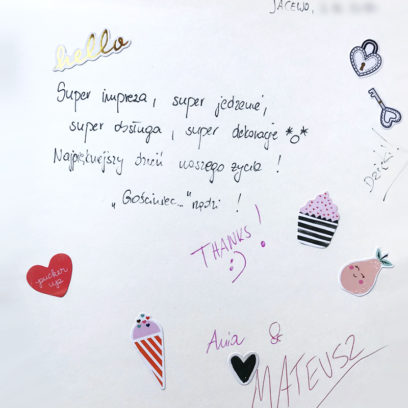 JACEWO,
hello
Super impreza, super jedzenie,
super obsługa, super dekoracje *o*
Najpiękniejszy dzień naszego życia !
„Gościniec..." rządzi !
Dzięki!
THANKS! :)
pucker up
Ania &
MATEUSZ